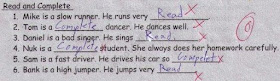 Read and Complete
1. Mike is a slow runner. He runs very Read
2. Tom is a Complete dancer. He dances well.
3. Daniel is a bad singer. He sings Read.
4. Nuk is a Complete student. She always does her homework carefully.
5. Sam is a fast driver. He drives his car so Complete
6. Bank is a high jumper. He jumps very Read